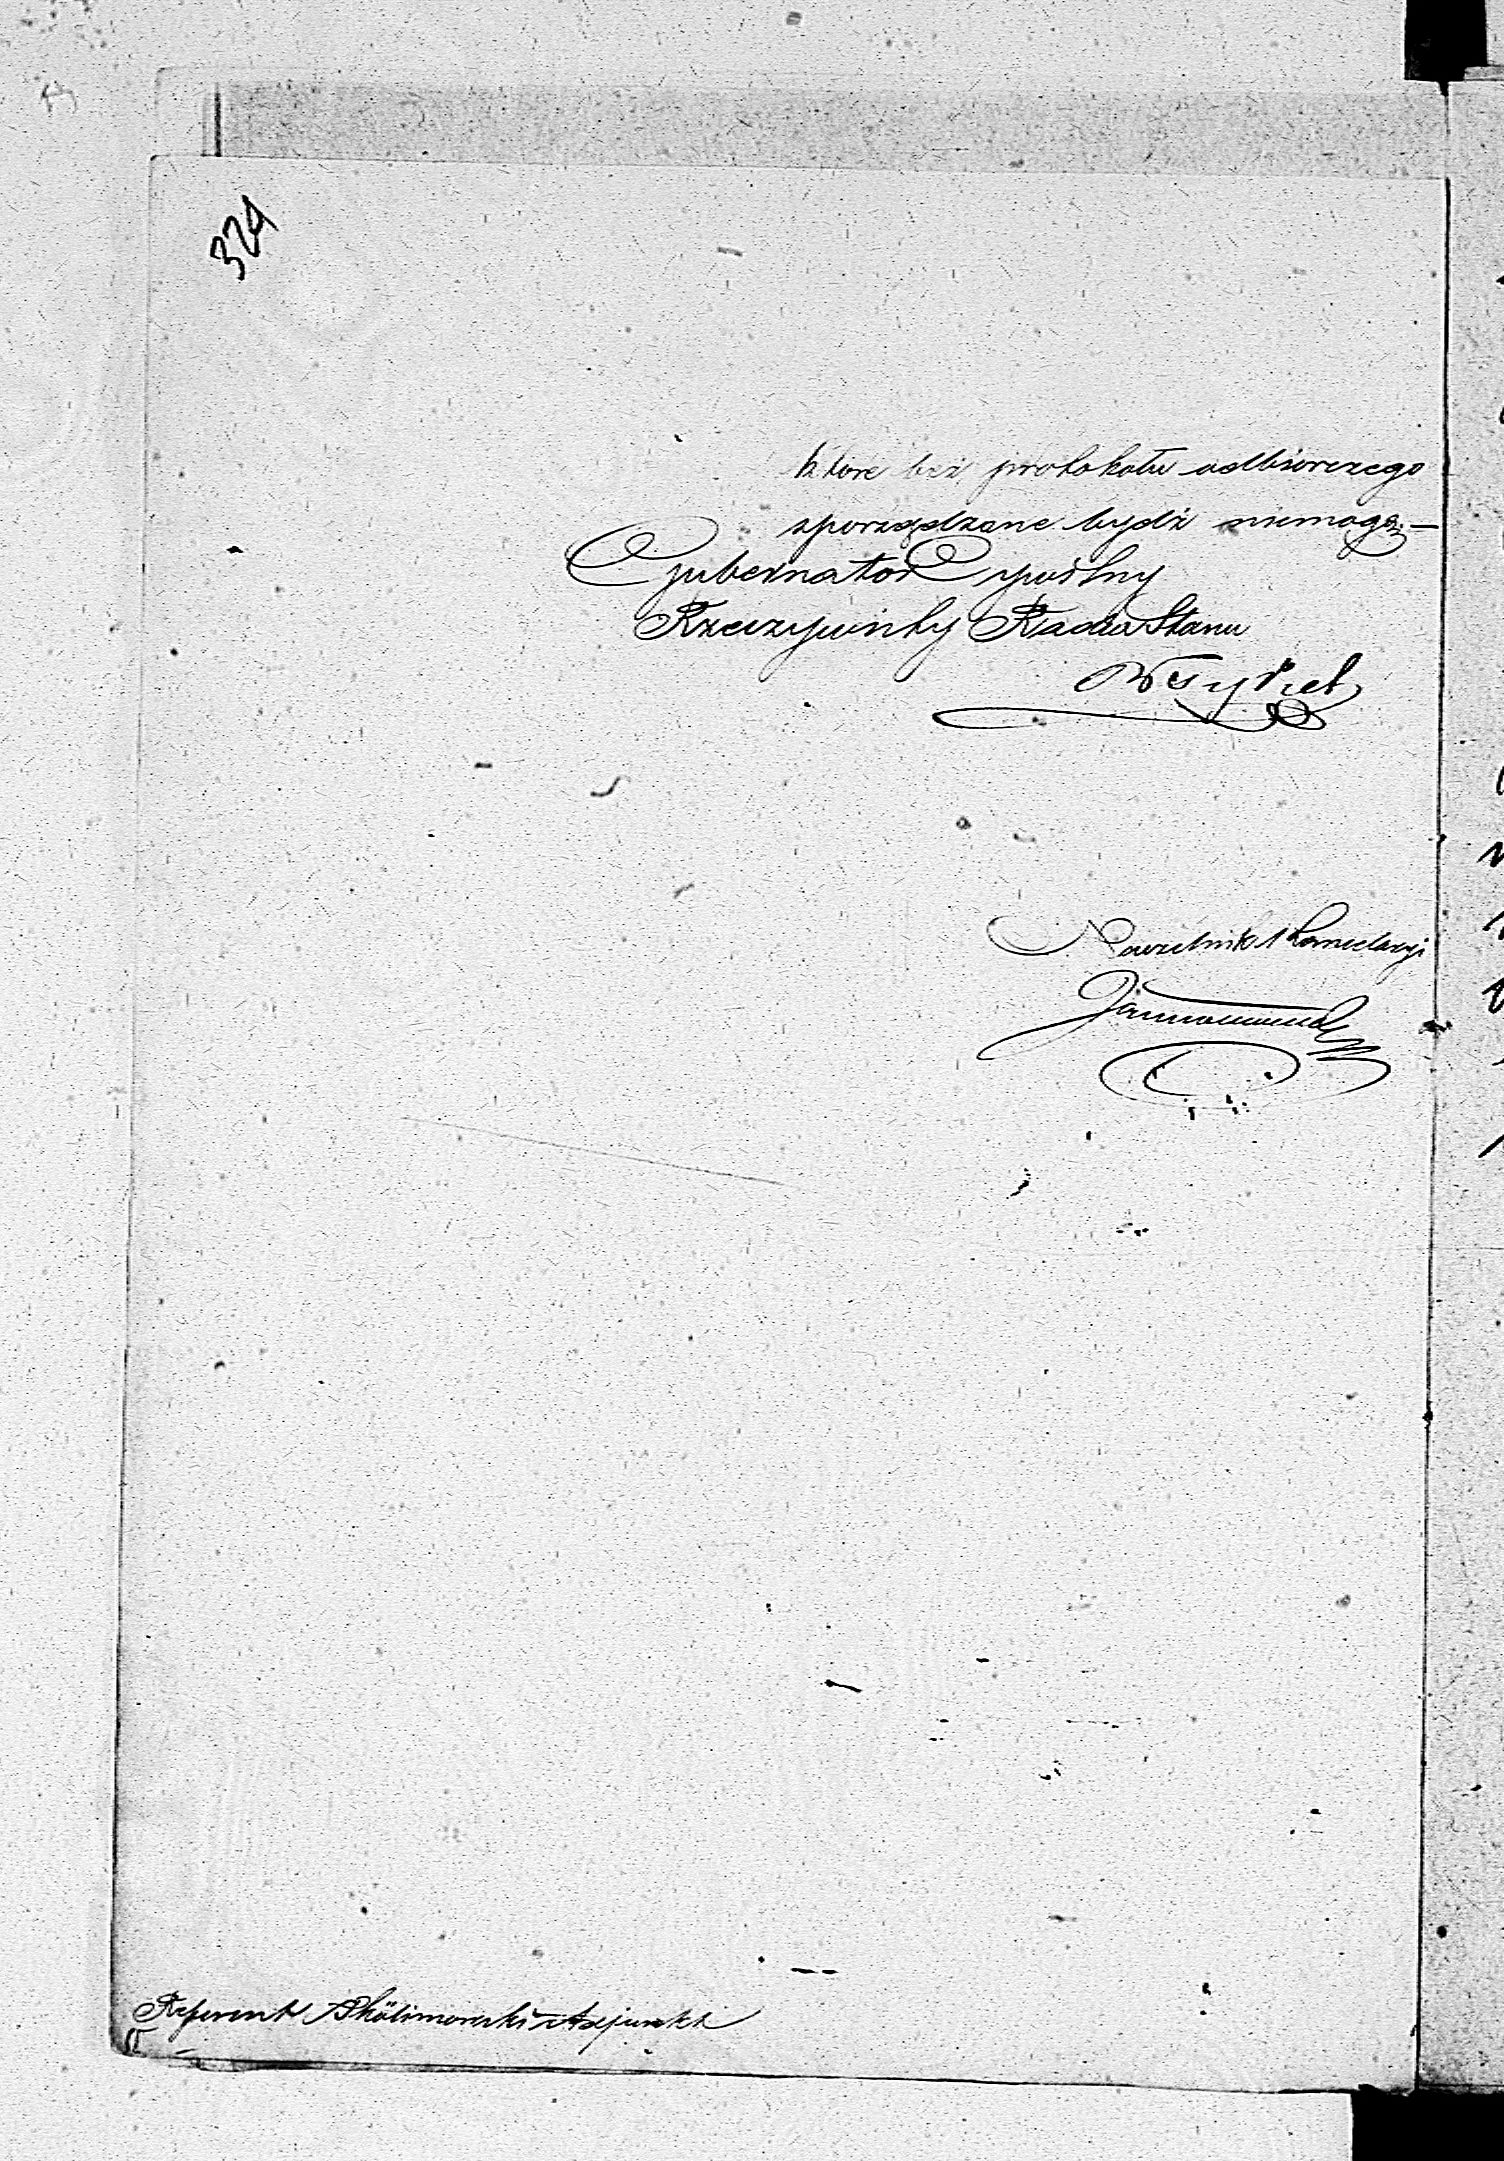 324
które bez protokołu odbiorczego
sporządzane bydź niemogą.—
Gubernator Cywilny
Rzeczywisty Radca Stanu
Naczelnik Kancelaryi
Referent Skolimowski Adjunkt